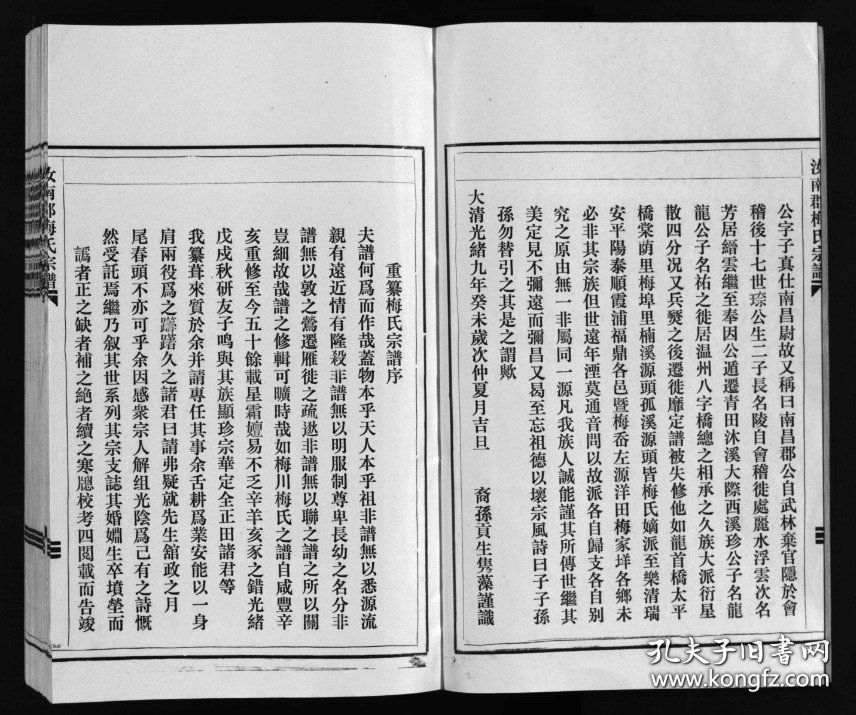 汝南郡梅氏宗譜
公字子真仕南昌尉故又稱曰南昌郡公自武林棄官隱於會
稽後十七世琮公生二子長名陵自會稽徙處麗水浮雲次名
芳居縉雲繼至奉因公遁遷青田沐溪大際西溪珍公子名龍
龍公子名祐之徙居温州八字橋總之相承之久族大派衍星
散四分况又兵燹之後遷徙靡定譜被失修他如龍首橋太平
橋棠荫里梅埠里楠溪源頭孤溪源頭皆梅氏嫡派至樂清瑞
安平陽泰順霞浦福鼎各邑暨梅岙左源洋田梅家垟各鄉未
必非其宗族但世遠年湮莫通音問以故派各自歸支各自别
究之原由無一非屬同一源凡我族人誠能謹其所傳世繼其
美定見不彌遠而彌昌又曷至忘祖德以壞宗風詩曰子子孫
孫勿替引之其是之謂歟
大清光緒九年癸未歲次仲夏月吉旦　裔孫貢生雋藻謹識
重纂梅氏宗譜序
夫譜何爲而作哉蓋物本乎天人本乎祖非譜無以悉源流
親有遠近情有隆殺非譜無以明服制尊卑長幼之名分非
譜無以敦之鶯遷雁徙之疏逖非譜無以聯之譜之所以關
豈細故哉譜之修輯可曠時哉如梅川梅氏之譜自咸豐辛
亥重修至今五十餘載星霜嬗易不乏辛羊亥豕之錯光緒
戊戌秋研友子鸣與其族顯珍宗華定全正田諸君等
我纂葺來質於余并請專任其事余舌耕爲業安能以一身
肩兩役爲之躊躇久之諸君曰請弗疑就先生舘政之月
尾春頭不亦可乎余因感衆宗人解组光陰爲己有之詩慨
然受託焉繼乃叙其世系列其宗支誌其婚婣生卒墳塋而
譌者正之缺者補之絶者續之寒牕校考四閲載而告竣
汝南郡梅氏宗譜
孔夫子旧書网
www.kongfz.com